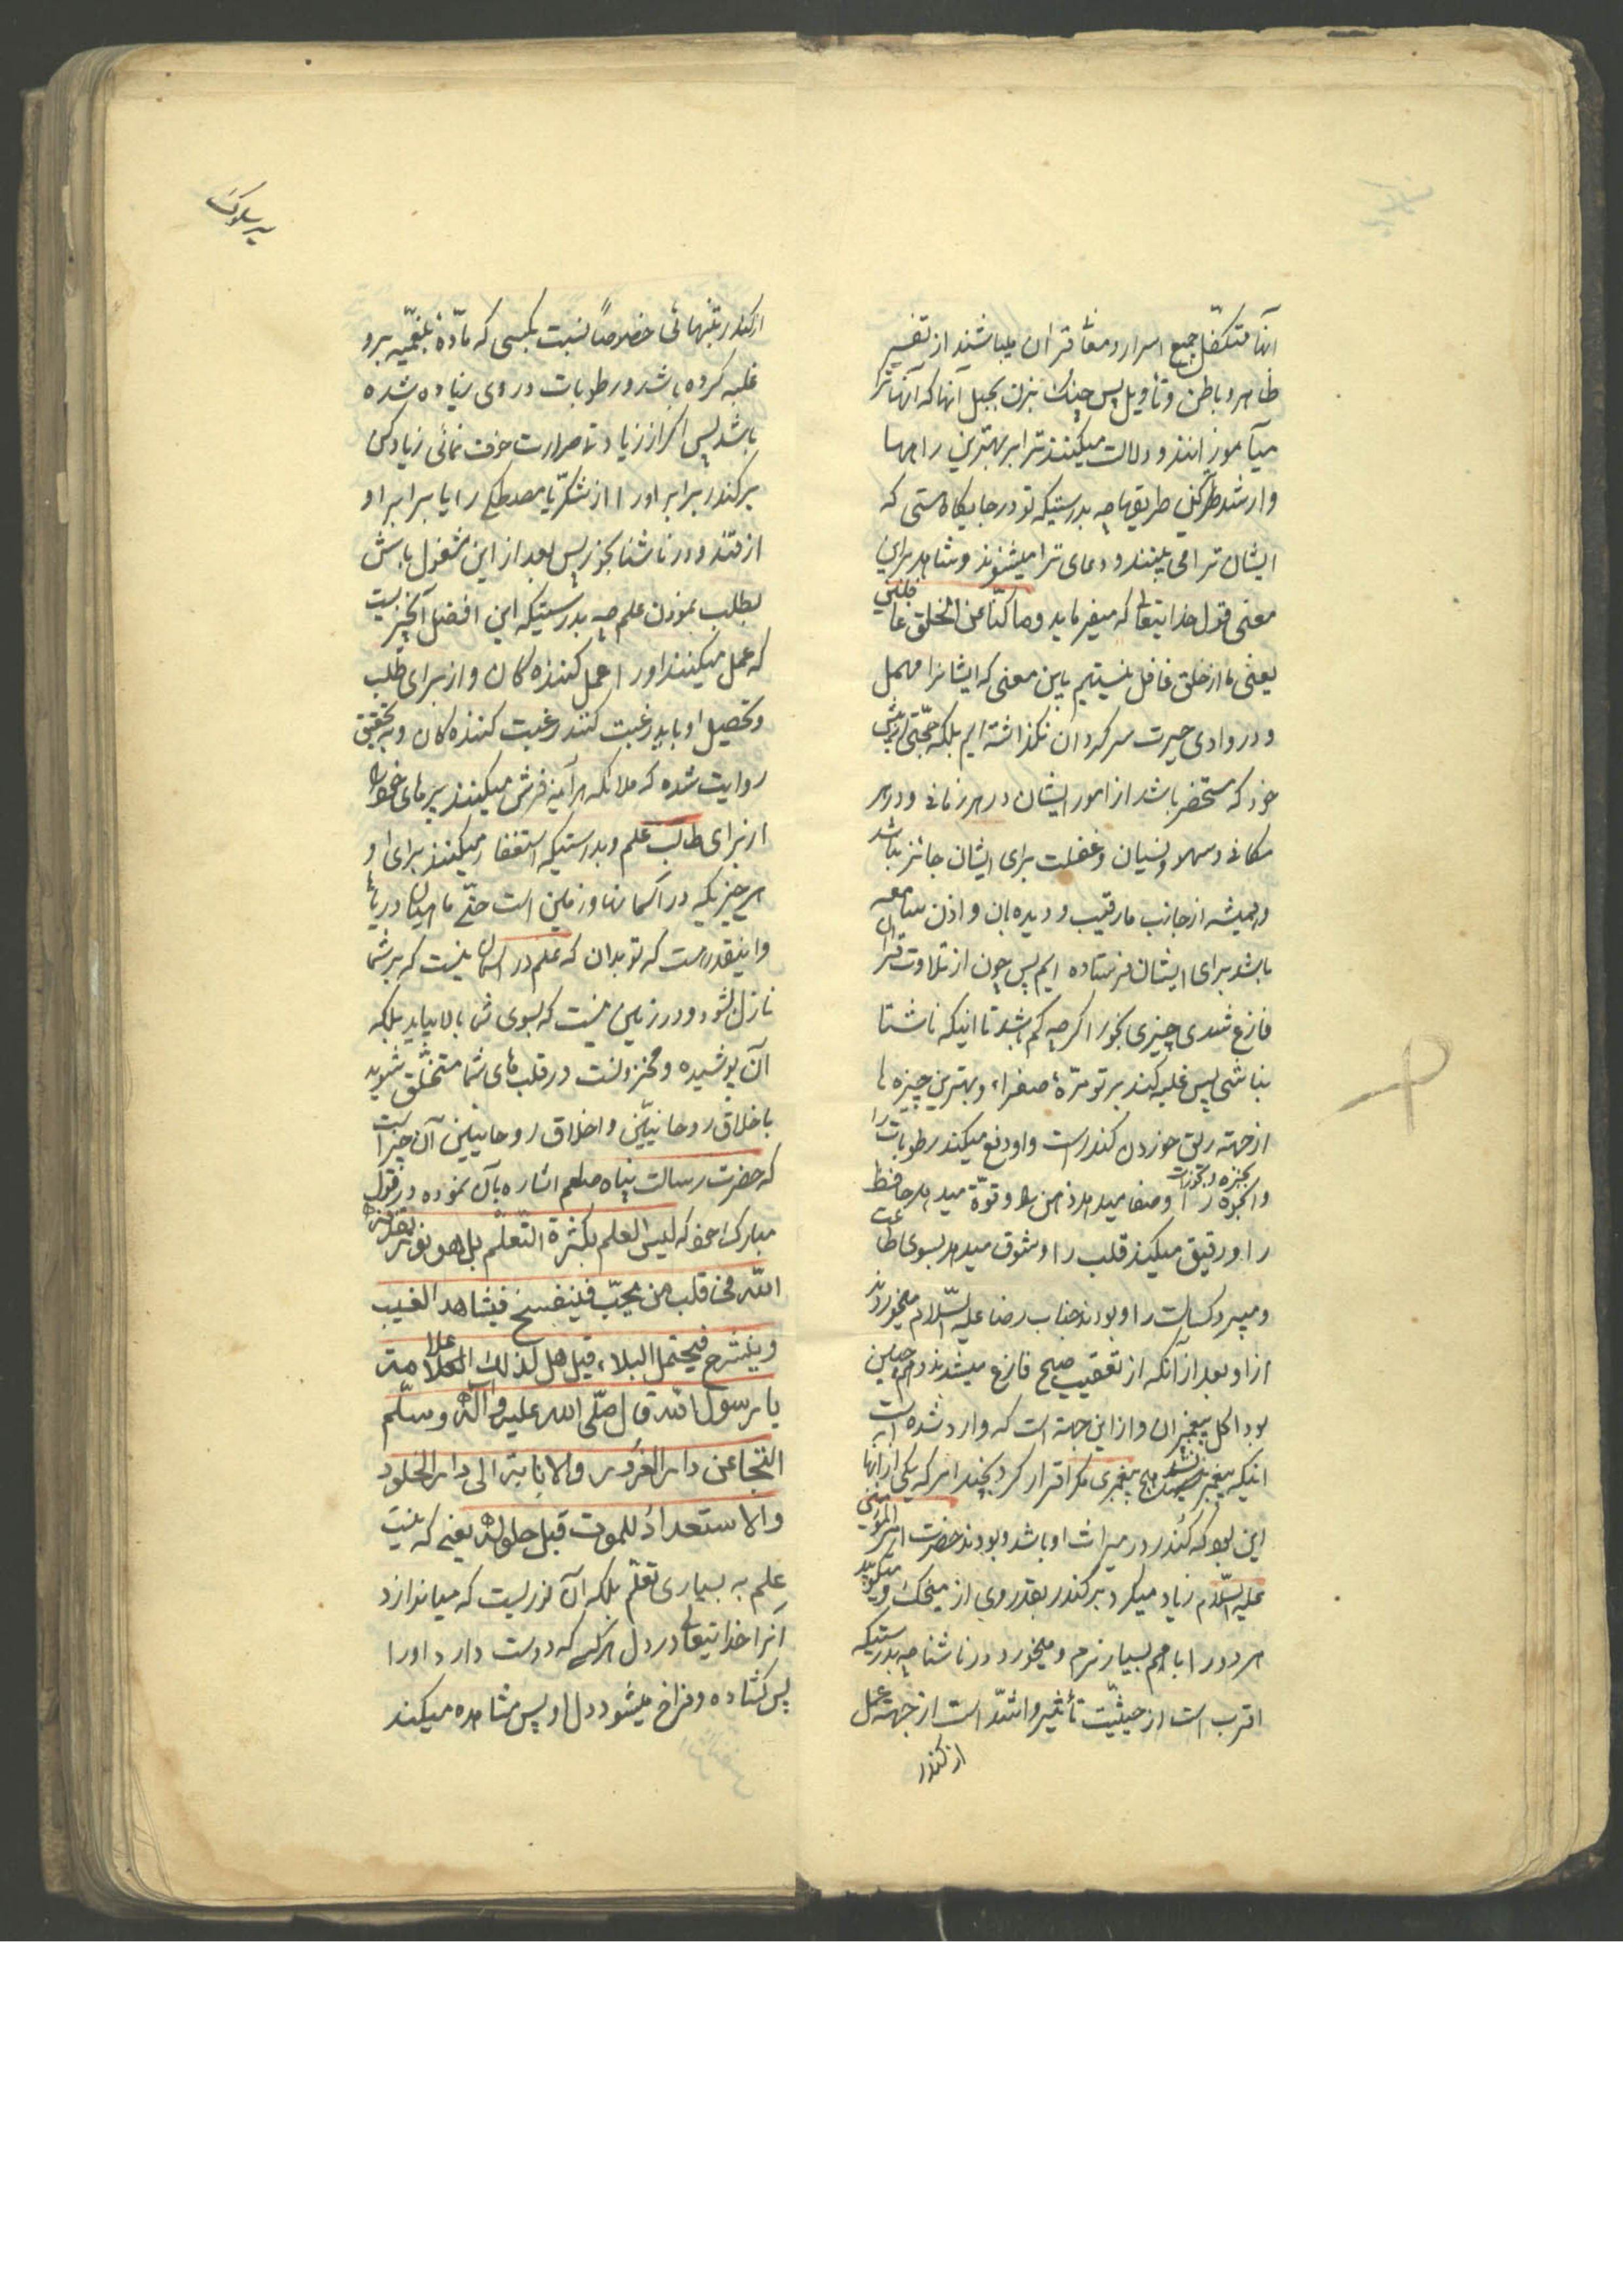 آنها متکفل جمیع اسرار و معانی قران میباشند از تفسیر
ظاهر و باطن و تأویل پس چنک بزن بحبل آنها که آنها ترا
میآموزانند و دلالت میکنند ترا بر بهترین راهها
و ارشد طرق طریقها چه بدرستیکه تو در جایگاه هستی که
ایشان ترا می بینند و دعای ترا میشنوند و شاهد براین
معنی قول خدایتعالی که میفرماید و ما کنّا عن الخلق غافلین
یعنی ما از خلق غافل نیستیم باین معنی که ایشانرا مهمل
و در وادی حیرت سرکردان نکذاشته ایم بلکه حجّتی از پیش
خود که مستحضر باشد از امور ایشان در هر زمانی و در هر
مکانی و سهو و نسیان و غفلت برای ایشان جائز نباشد
و همیشه از جانب ما رقیب و دیده بان و اذن سامعه
باشد برای ایشان فرستاده ایم پس چون از تلاوت قران
فارغ شدی چیزی بخور اکرچه کم باشد تا اینکه ناشتا
نباشی پس غلبه کند بر تو مرّهٔ صفراء و بهترین چیزها
از جهته ریق خوردن کندر است و او دفع میکند رطوبات را
و ابخره را و صفا میدهد ذهن را و قوّة میدهد حافظه
را و رقیق میکند قلب را و شوق میدهد بسوی طاعت
و میبرد کسالت را و بودند جناب رضا علیه السّلام میخوردند
از او بعد از آنکه از تعقیب صبح فارغ میشدند و همچنین
بود اکل پیغمبران و از این جهته است که وارد شده است
اینکه پیغمبر نشد هیچ پیغمبری مکر اقرار کرد بچند امر که یکی از آنها
این بود که کُندر در میراث او باشد و بودند حضرت امیر المؤمنین
علیه السّلام زیاد میکرد بر کندر بقدر وی از میخک و میکوبید
هر دو را با هم بسیار نرم و میخورد در ناشتا چه بدرستیکه
اقرب است از حیثیّت تأثیر و اشدّ است از جهته عمل
از کندر
سیر سلوک
از کندر تنهائی خصوصاً نسبت بکسی که مادّهٔ بلغمیّه برو
غلبه کرده باشد و رطوبات در وی زیاده شده
باشد پس اکر از زیادتی حرارت خوف نمائی زیاد کن
بر کندر برابر او را از شکر یا مصطکی را یا برابر او
از قند و در ناشتا بخور پس بعد از این مشغول باش
بطلب نمودن علم چه بدرستیکه این افضل آنچیزیست
که عمل میکنند او را عمل کننده کان و از برای طلب
و تحصیل او باید رغبت کنند رغبت کننده کان و بتحقیق
روایت شده که ملائکه هر آینه فرش میکنند پرهای خود را
از برای طالب علم و بدرستیکه استغفار میکنند برای او
هر چیزیکه در آسمانها و زمین است حتّی ماهیان دریا
و اینقدر هست که تو بدان که علم در آسمان نیست که بر شما
نازل شود و در زمین نیست که بسوی شما بالا بیاید بلکه
آن پوشیده و مخزونست در قلب های شما متخلّق شوید
باخلاق روحانیّین و اخلاق روحانیین آن چیزاست
که حضرت رسالت پناه صلعم اشاره بآن نموده در قول
مبارک خود که لیس العلم بکثرة التّعلّم بل هو نور یقذفه
اللّه فی قلب من یحبّ فینفسح فیشاهد الغیب
و ینشرح فیحتمل البلاء، قیل هل لذلك علامة
یا رسول اللّه قال صلّی اللّه علیه و آله و سلّم
التّجافی عن دار الغرور و الانابة الی دار الخلود
و الاستعداد للموت قبل حلوله یعنی که نیست
علم به بسیاری تعلّم بلکه آن نوریست که میاندازد
آنرا خدایتعالی در دل هر کس که دوست دارد او را
پس کشاده و فراخ میشود دل او پس مشاهده میکند